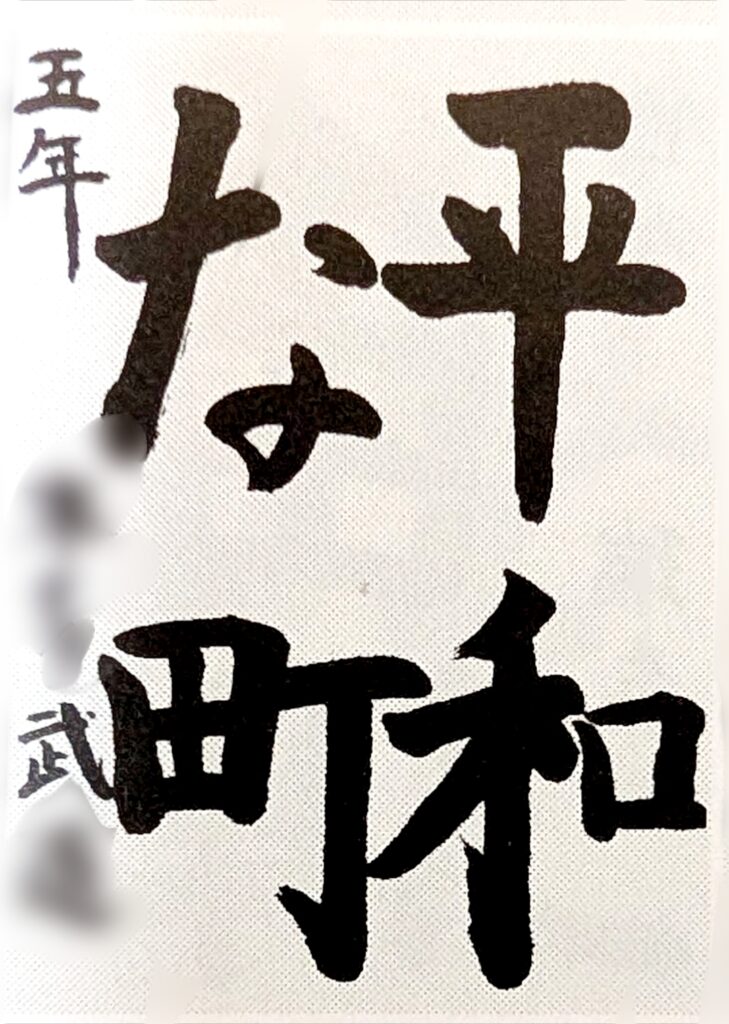 平和
な町
五年 武